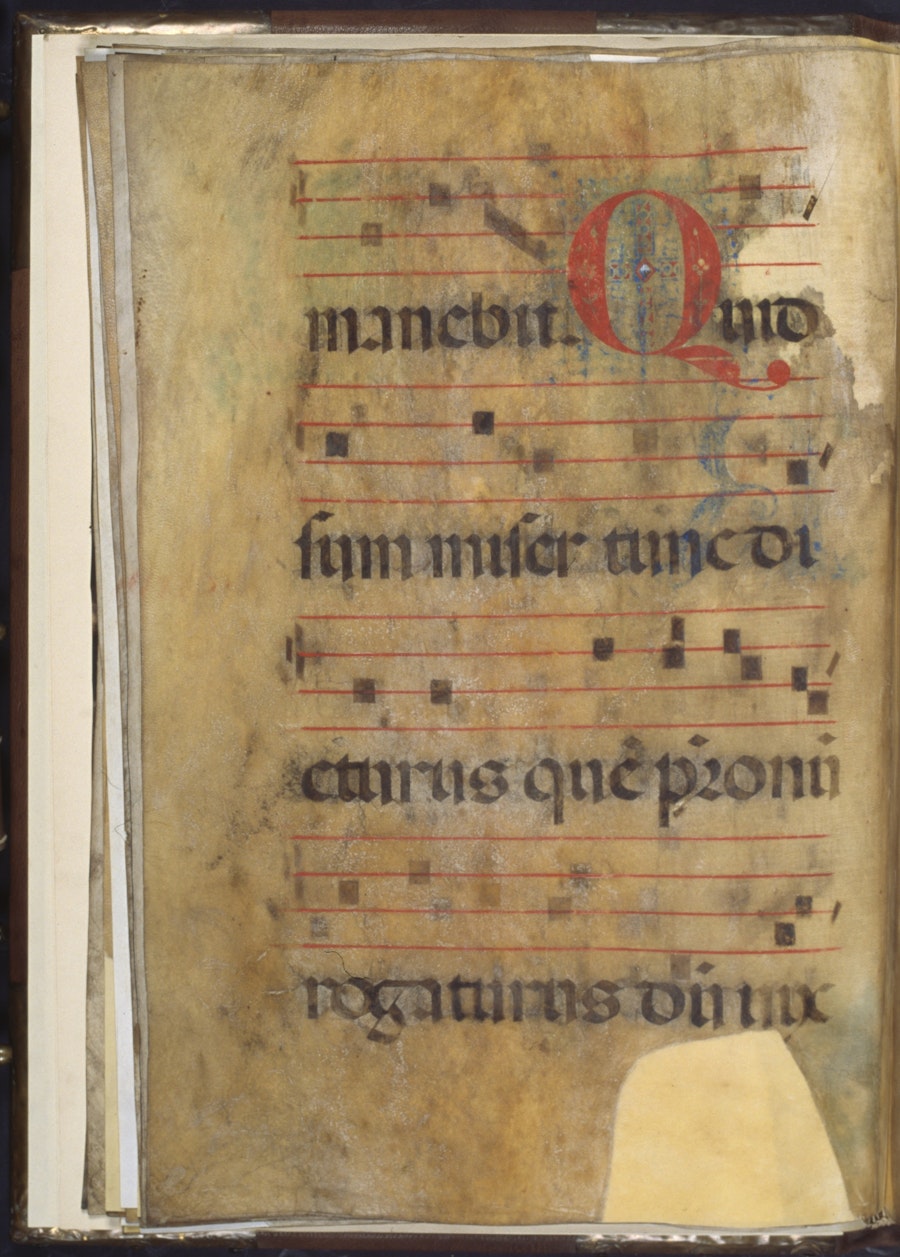 manebit. Quid
sum miser tunc di
cturus quē pr̄onū
rogaturus dū vix